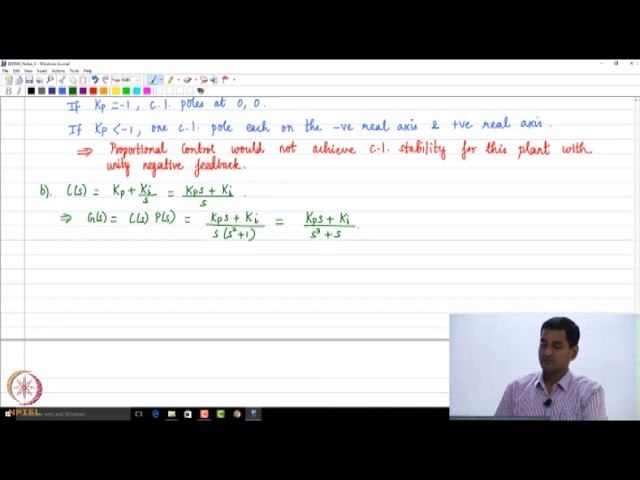 If Kp = -1, c.l. poles at 0, 0.
If Kp < -1, one c.l. pole each on the -ve real axis & +ve real axis.
⇒ Proportional Control would not achieve c.l. stability for this plant with
unity negative feedback.
b). C(s) = Kp + Ki/s = (Kps + Ki)/s .
⇒ G(s) = C(s) P(s) = (Kps + Ki)/(s(s²+1)) = (Kps + Ki)/(s³ + s) .
NPTEL